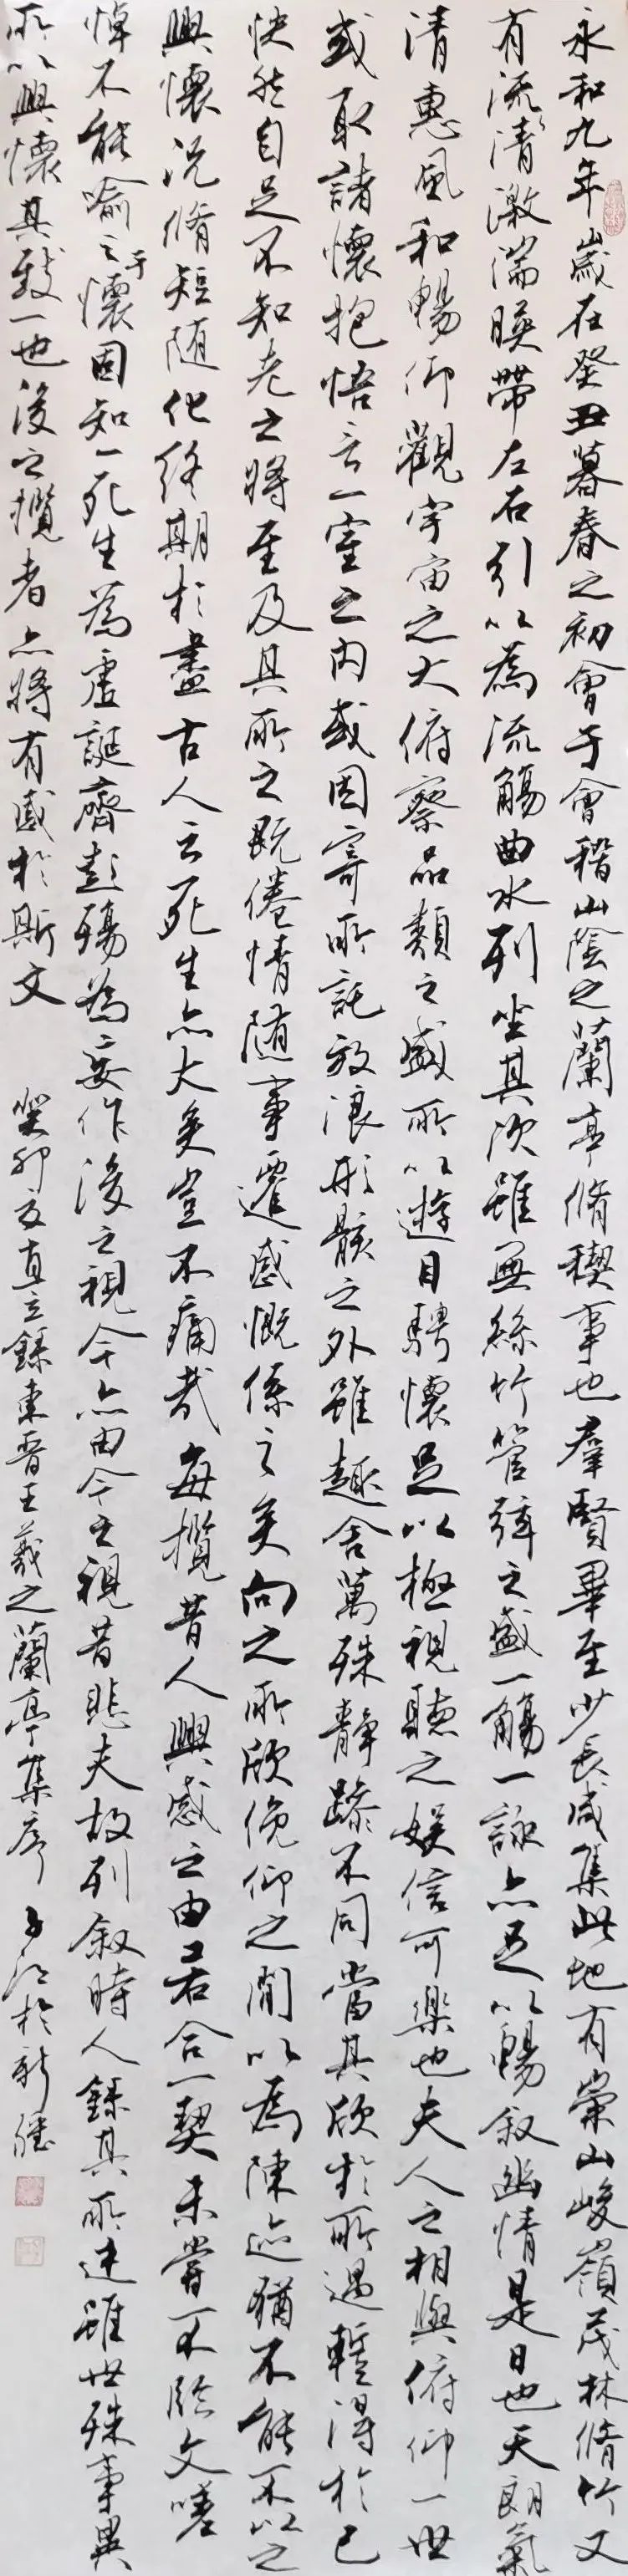 永和九年歲在癸丑暮春之初會于會稽山陰之蘭亭脩稧事也羣賢畢至少長咸集此地有崇山峻嶺茂林脩竹又
有流清激湍暎帶左右引以為流觴曲水列坐其次雖無絲竹管弦之盛一觴一詠亦足以暢叙幽情是日也天朗氣
清惠風和暢仰觀宇宙之大俯察品類之盛所以遊目騁懷足以極視聽之娛信可樂也夫人之相與俯仰一世
或取諸懷抱悟言一室之內或因寄所託放浪形骸之外雖趣舍萬殊靜躁不同當其欣於所遇暫得於己
快然自足不知老之將至及其所之既倦情随事遷感慨係之矣向之所欣俛仰之閒以為陳迹猶不能不以之
興懷況脩短随化終期於盡古人云死生亦大矣豈不痛哉每攬昔人興感之由若合一契未嘗不臨文嗟
悼不能喻之于懷固知一死生為虛誕齊彭殤為妄作後之視今亦由今之視昔悲夫故列叙時人錄其所述雖世殊事異
所以興懷其致一也後之攬者亦將有感於斯文
癸卯夏直立錄東晉王羲之蘭亭集序 子江於新疆